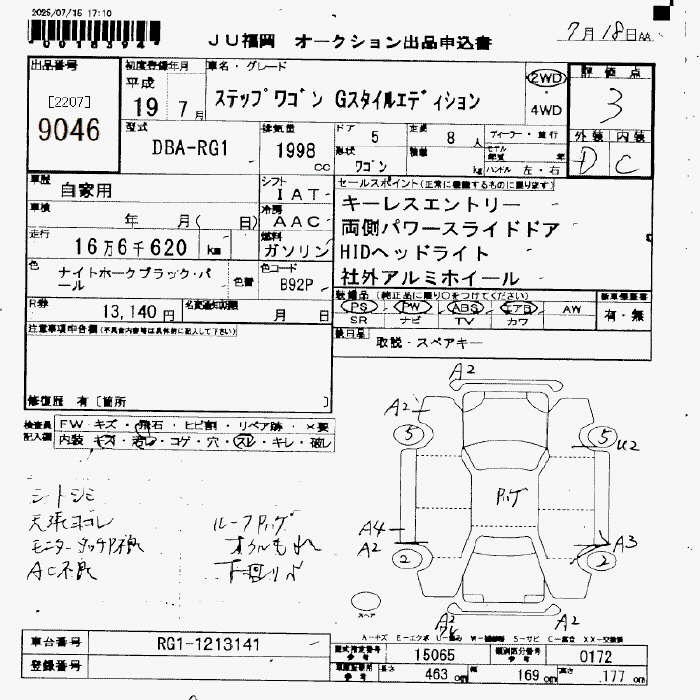 2025/07/15 17:10
*00183944*
JU福岡 オークション出品申込書
7月18日AA
出品番号
[2207]
9046
初度登録年月
平成
19 7月
車名・グレード
ステップワゴン Gスタイルエディション
2WD
・
4WD
評価点
3
外装 内装
D C
型式
DBA-RG1
排気量
1998
cc
ドア 5
形状 ワゴン
定員 8 人
積載 kg
ディーラー・並行
モデル年式 年
ハンドル 左・右
車歴
自家用
シフト
IAT
車検
年 月( 日)
冷房
AAC
走行
16万6千620 km
燃料
ガソリン
色
ナイトホークブラック・パール
色替
色コード
B92P
R券
13,140円
名変通知期限
月 日
セールスポイント(正常に機能するものに限ります)
キーレスエントリー
両側パワースライドドア
HIDヘッドライト
社外アルミホイール
装備品 (純正品に限り○をつけてください)
PS PW ABS エアB AW
SR ナビ TV カワ
新車保証書
有・無
後日品
取説・スペアキー
注意事項申告欄(不具合内容等は具体的に記入して下さい)
修復歴 有〔箇所 〕
検査員
記入欄
FW キズ・飛石・ヒビ割・リペア跡・×要
内装 キズ・汚レ・コゲ・穴・スレ・キレ・破レ
シートシミ
天張ヨゴレ
モニタータッチP不良
AC不良
ルーフPリンダ
オイルもれ
下回りサビ
A2
A2
5
5
U2
A4
A2
2
2
A3
A2
A2
スペア
A―キズ E―エクボ U―凹み W―補修跡 S―サビ C―腐食 XX―交換済
車台番号
RG1-1213141
登録番号
型式指定番号
参考
15065
類別区分番号
参考
0172
長さ 463 cm
幅 169 cm
高さ 177 cm